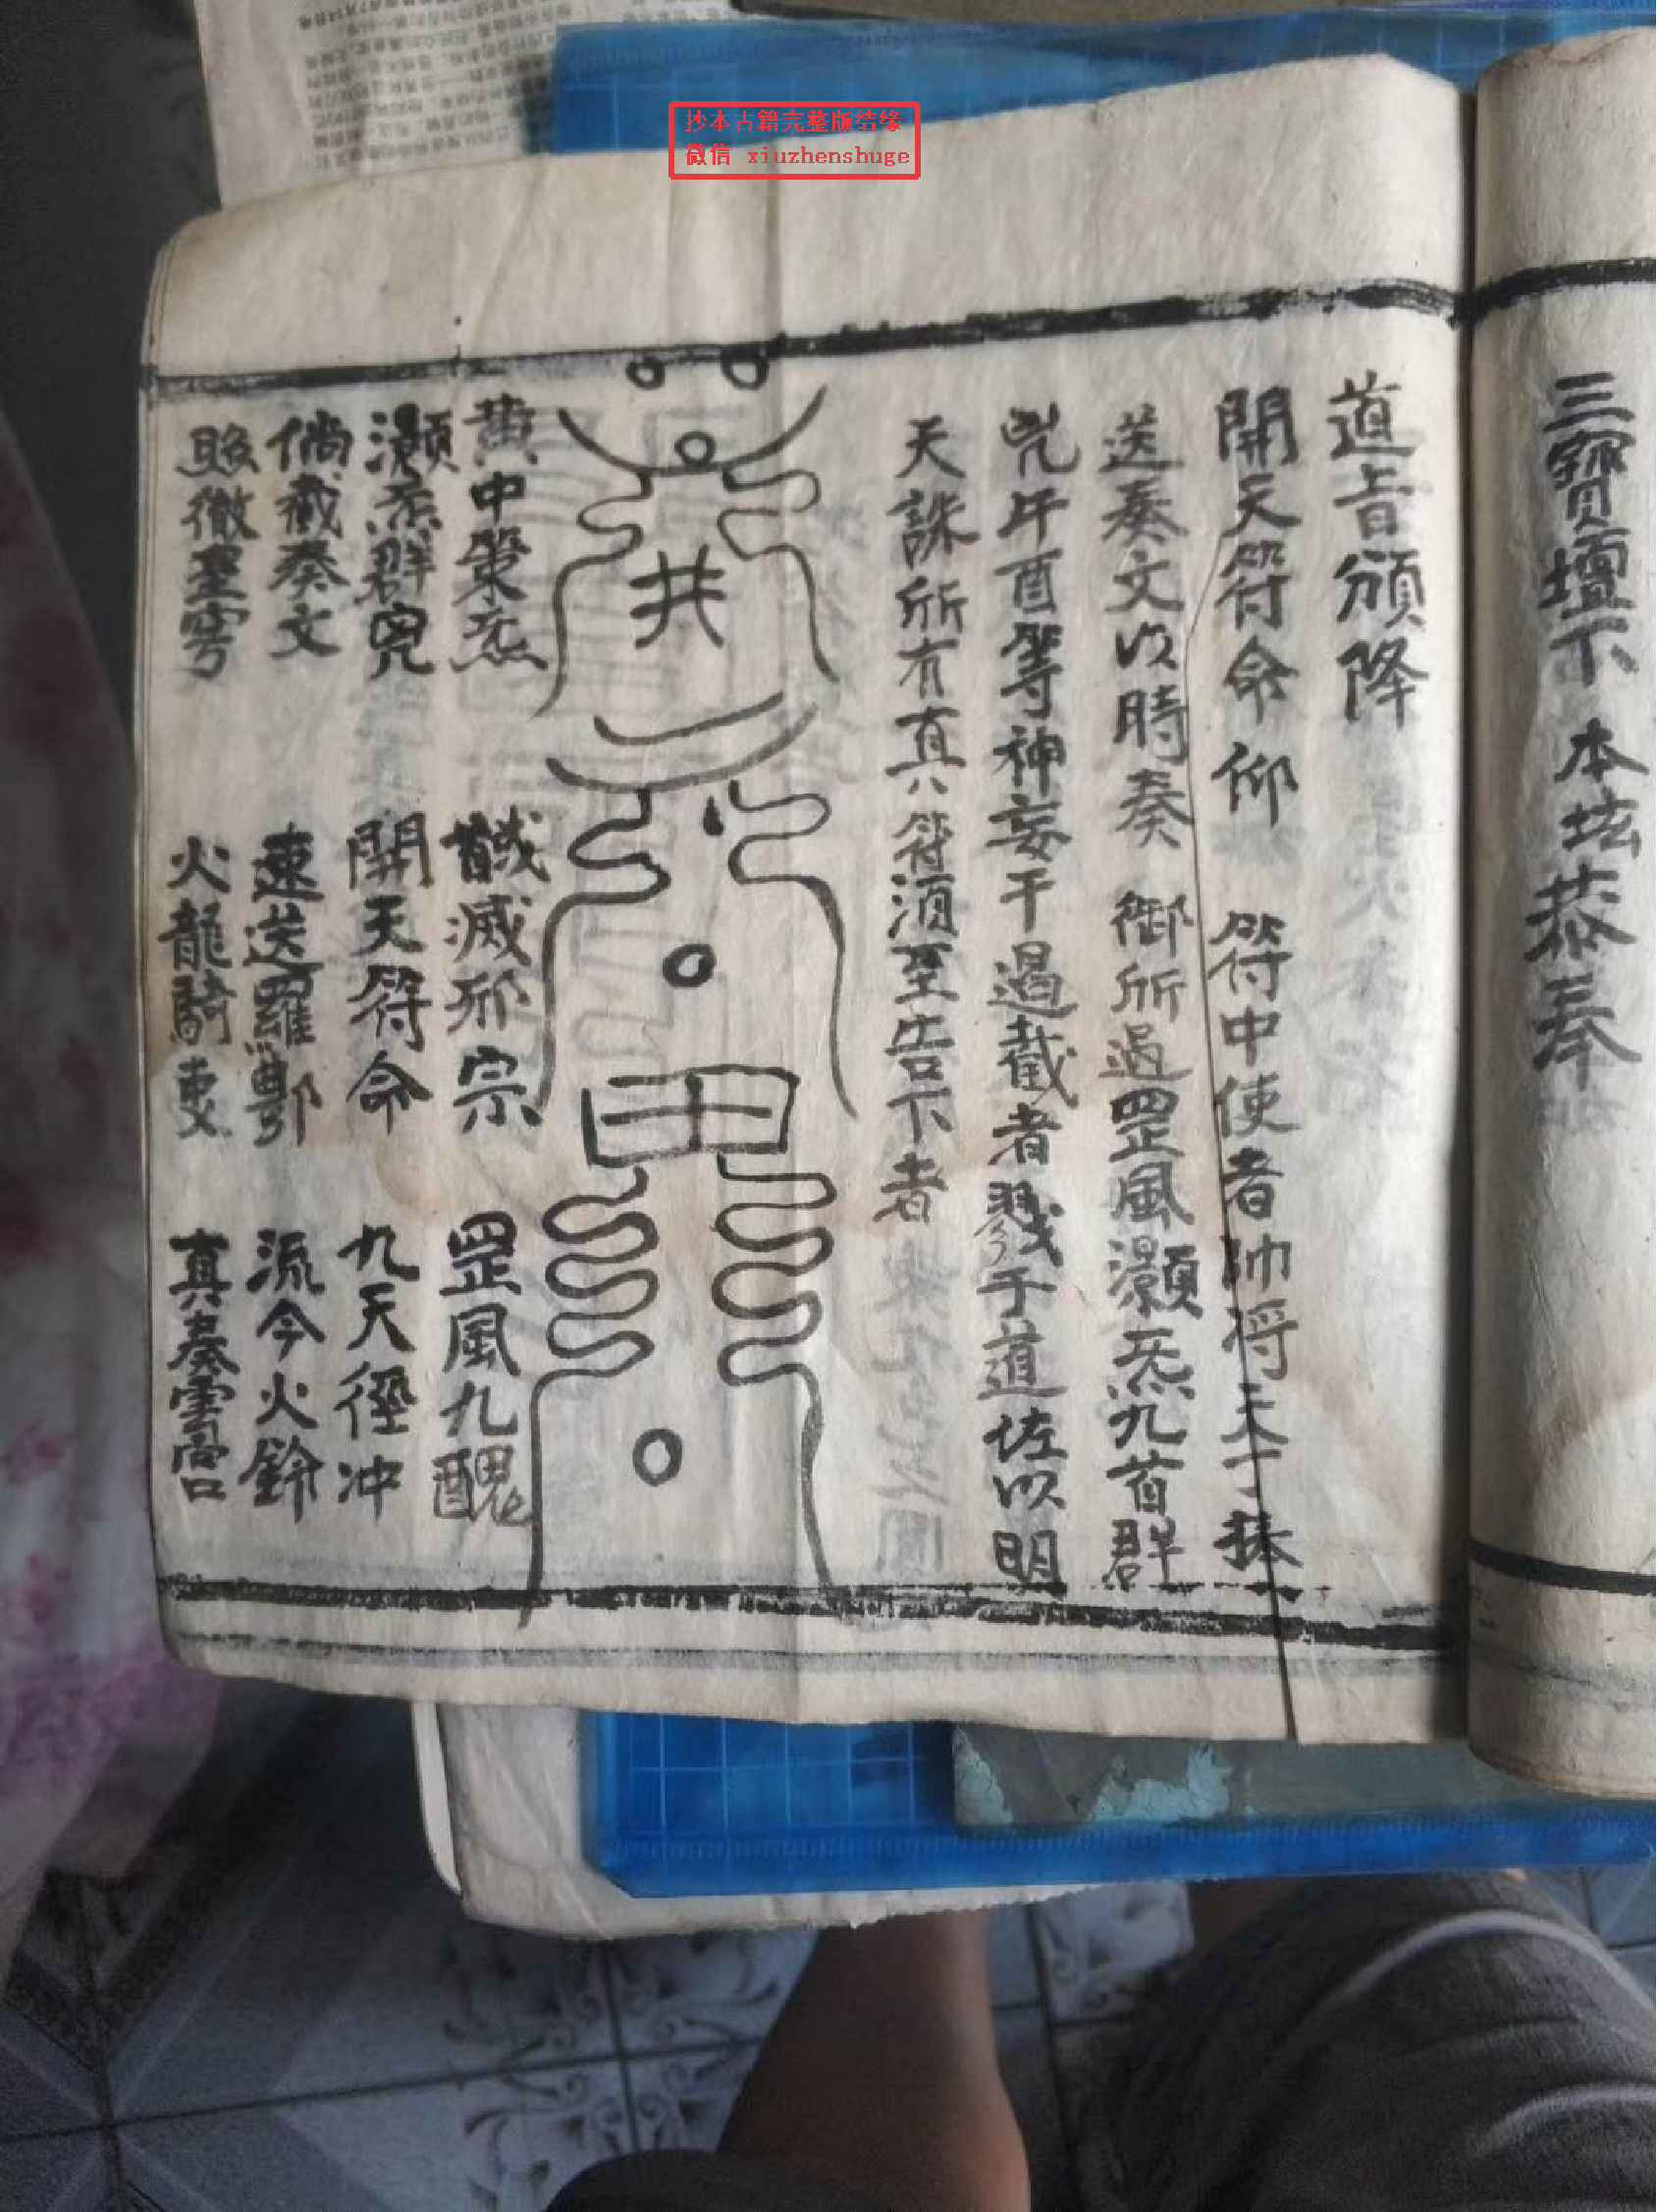 抄本古籍完整版结缘
微信 xiuzhenshuge
三寶壇下 本坛恭奉
道旨頒降
開天符命 仰 符中使者帅将天丁捧
送奏文以時奏 御所過罡風灝炁九首群
兇年酉等神妄干遏截者戮于道佐以明
天誅所有真符須至告下者
黄中策炁 馘滅邪宗 罡風九醜
灝炁群兇 開天符命 九天徑冲
倘截奏文 速送羅酆 流今火鈴
火龍騎吏 真奏雲